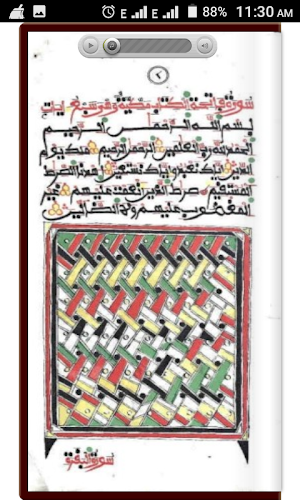 E E 88% 11:30 AM
٢
سورة فاتحة الكتب مكية وهي سبع ايات
بسم الله الرحمن الرحيم
الحمد لله رب العلمين الرحمن الرحيم ملك يوم
الدين اياك نعبد واياك نستعين اهدنا الصرط
المستقيم صرط الذين انعمت عليهم غير
المغضوب عليهم ولا الضالين
سورة البقرة